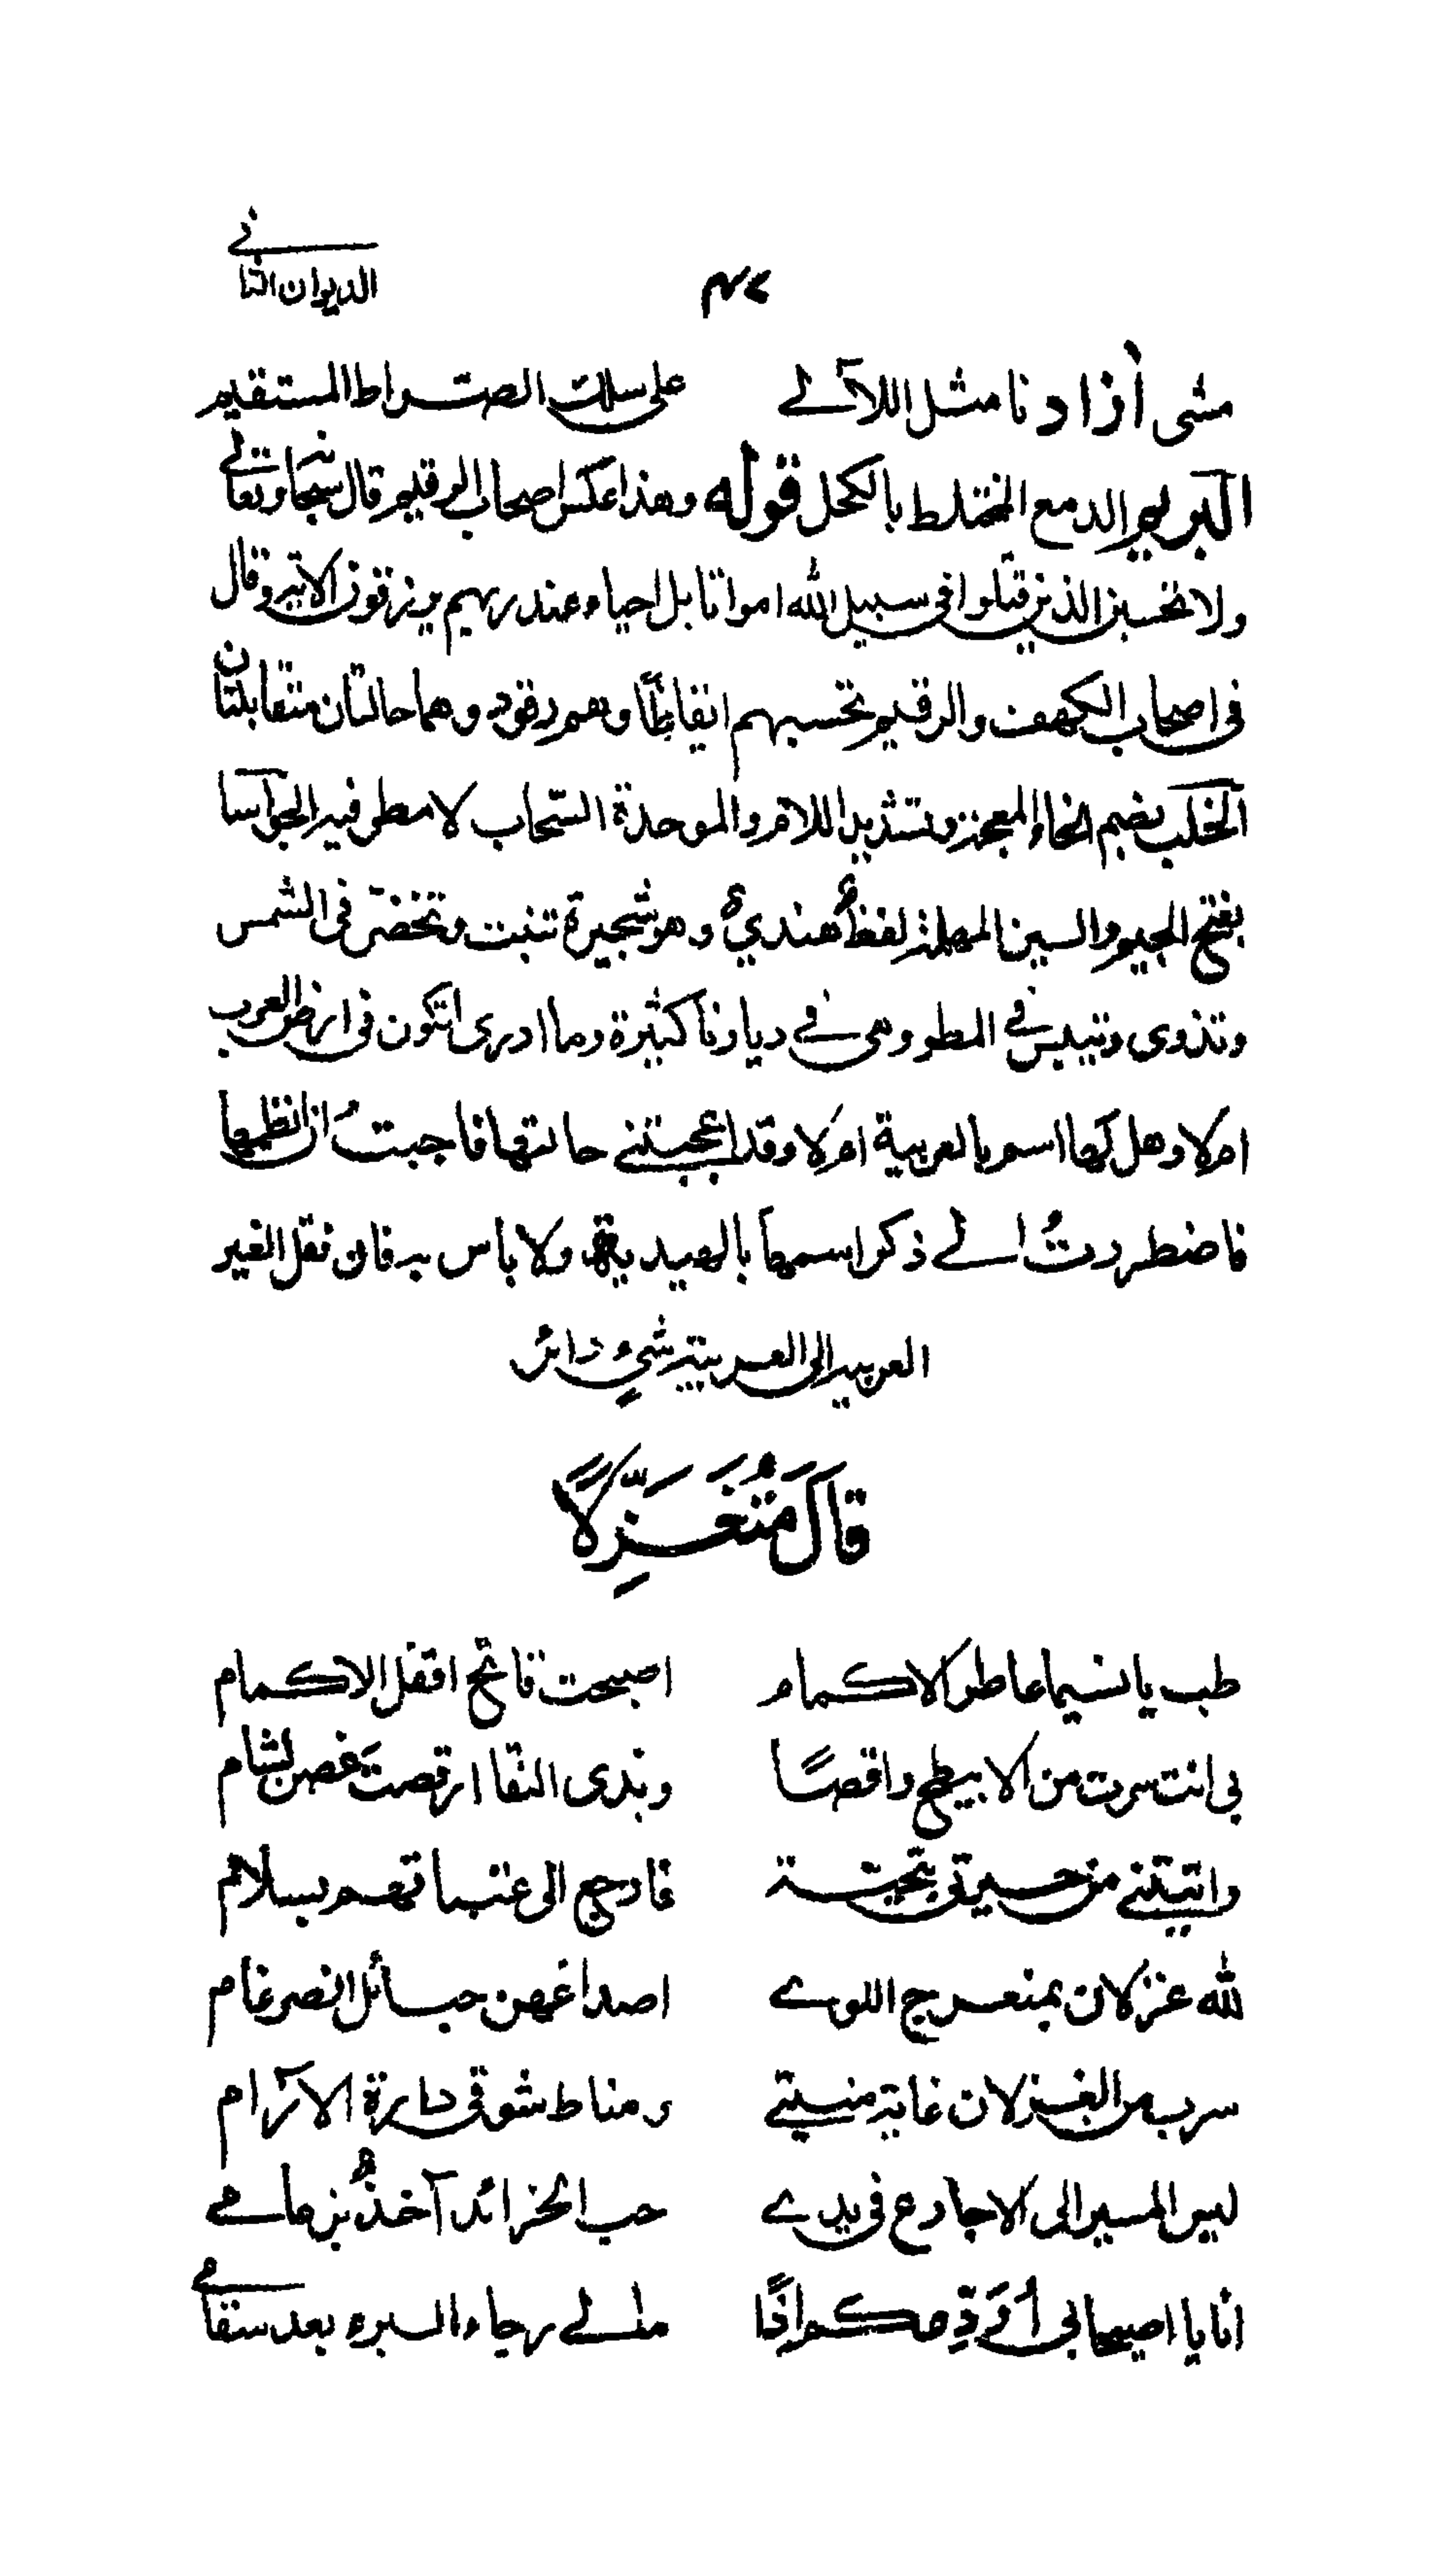 الديوان الثاني
مشى آزادنا مثل اللآلے على سلك الصراط المستقيم
البريم الدمع المختلط بالكحل قوله وهذا عكس اصحاب الرقيم قال سبحانه وتعالے
ولا تحسبن الذين قتلوا فى سبيل الله امواتا بل احياء عند ربهم يرزقون الآية وقال
فى اصحاب الكهف والرقيم تحسبهم ايقاظًا وهم رقود وهما حالتان متقابلتان
الخلب بضم الخاء المعجمة وتشديد اللام والموحدة السّحاب لا مطر فيه الجواسا
بفتح الجيم والسين المهملة لفظٌ هنديٌ وهو شجيرة تنبت وتخضرّ فى الشمس
وتذوى وتيبس فے المطر وهى فے ديارنا كثيرة وما ادرى اتكون فى ارض العرب
ام لا وهل لها اسم بالعربية ام لا وقد اعجبتنے حالتها فاجبتُ ان انظمها
فاضطررتُ الے ذكر اسمها بالهندية ولا باس به فان نقل الغير
العربية الى العربية شئٍ دائر
قَالَ مُتَغَزِّلًا
طب يا نسيما عاطر الاكمام اصبحت فاتح اقفل الاكمام
بى انت سرت من الابيطح راقصًا وبذى النقا ارقصتَ غصن بشام
واتيتنے من جيرتى بتحية فارجع الى عتباتهم بسلام
لله غزلان بمنعرج اللوے اصداغهن حبائل الضرغام
سرب من الغزلان غاية منيتے ومناط شوقى دارة الآرام
ليس المسير الى الاجارع فى يدے حب الخرائد آخذٌ بزمامے
انا يا اصيحابى أُوَدِّعكم اذًا مالے رجاء البرء بعد سقامے